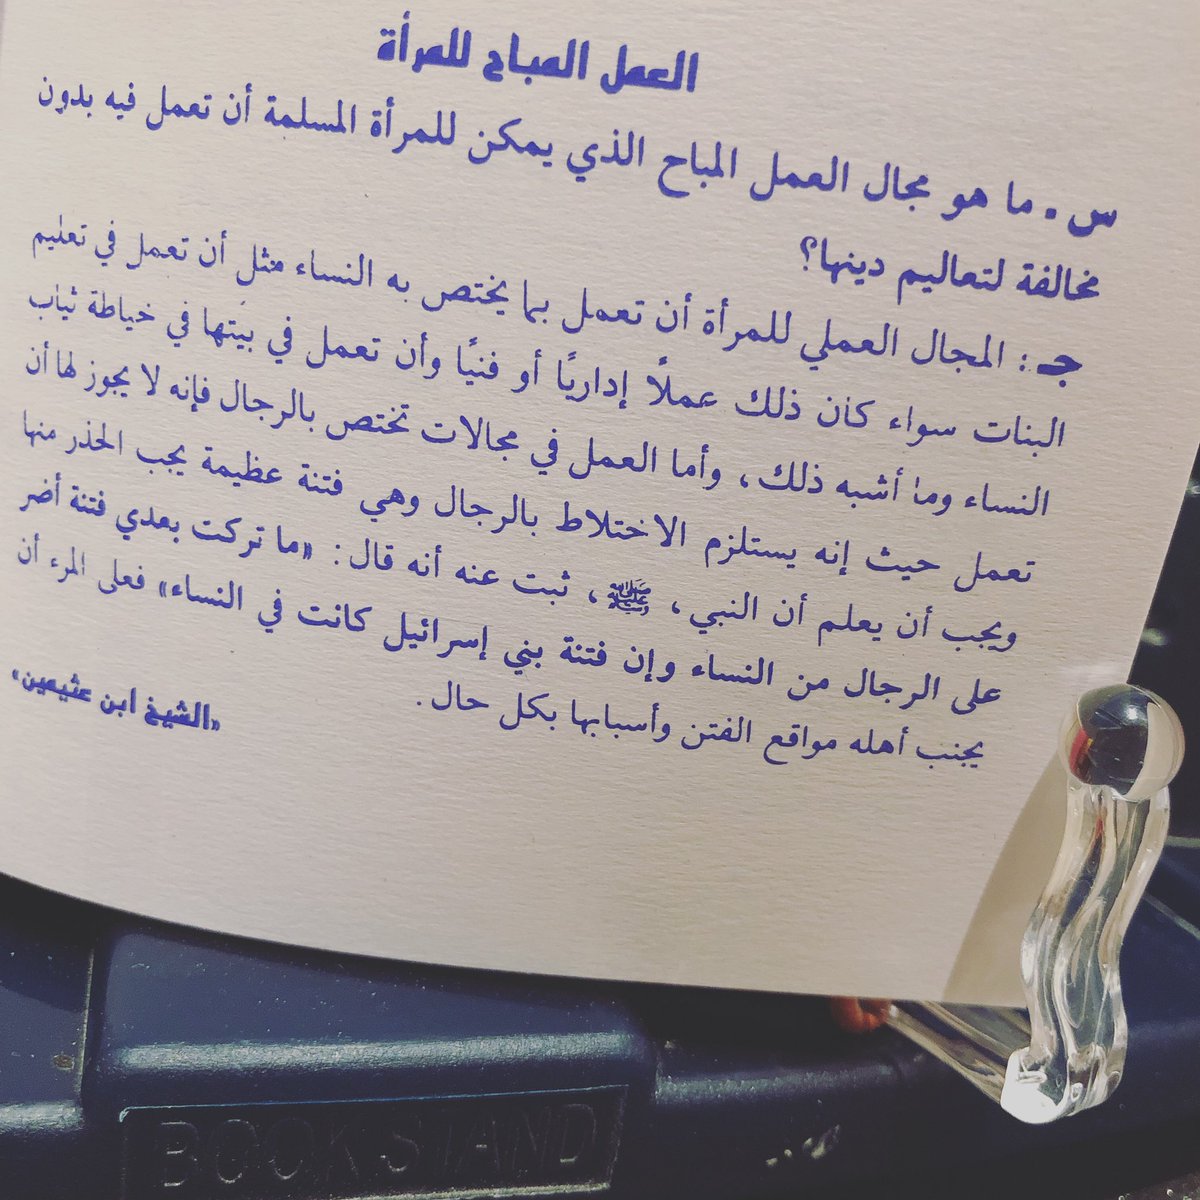 العمل المباح للمرأة
س . ما هو مجال العمل المباح الذي يمكن للمرأة المسلمة أن تعمل فيه بدون
مخالفة لتعاليم دينها؟
جـ : المجال العملي للمرأة أن تعمل بما يختص به النساء مثل أن تعمل في تعليم
البنات سواء كان ذلك عملاً إداريًا أو فنيًا وأن تعمل في بيتها في خياطة ثياب
النساء وما أشبه ذلك، وأما العمل في مجالات تختص بالرجال فإنه لا يجوز لها أن
تعمل حيث إنه يستلزم الاختلاط بالرجال وهي فتنة عظيمة يجب الحذر منها
ويجب أن يعلم أن النبي، ﷺ، ثبت عنه أنه قال: «ما تركت بعدي فتنة أضر
على الرجال من النساء وإن فتنة بني إسرائيل كانت في النساء» فعلى المرء أن
يجنب أهله مواقع الفتن وأسبابها بكل حال.
«الشيخ ابن عثيمين»
BOOK STAND